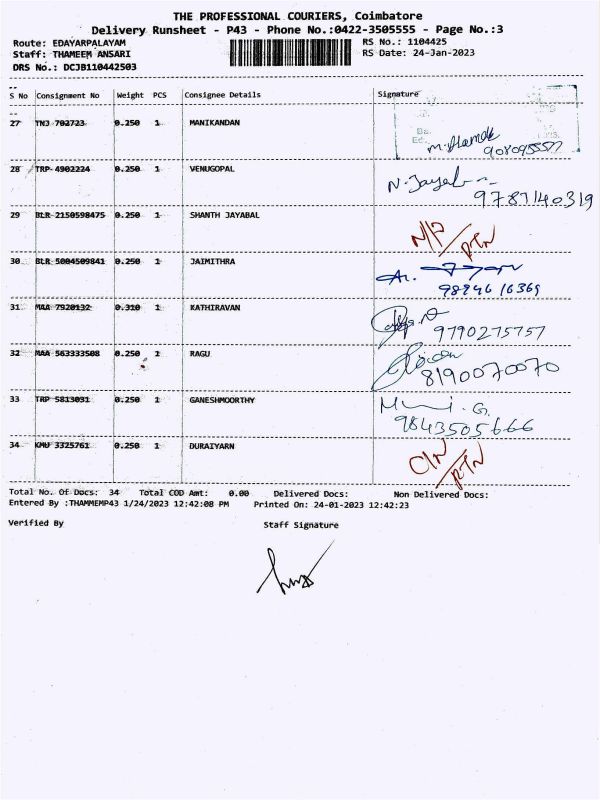 THE PROFESSIONAL COURIERS, Coimbatore
Delivery Runsheet - P43 - Phone No.:0422-3505555 - Page No.:3
Route: EDAYARPALAYAM RS No.: 1104425
Staff: THAMEEM ANSARI RS Date: 24-Jan-2023
DRS No.: DCJB110442503
S No Consignment No Weight PCS Consignee Details Signature
27 TNJ 702723 0.250 1 MANIKANDAN
9080955577
28 TRP 4902224 0.250 1 VENUGOPAL N. Jayal
9787140319
29 BLR 2150598475 0.250 1 SHANTH JAYABAL N/P / RTN
30 BLR 5004509841 0.250 1 JAIMITHRA
9894616369
31 MAA 7920132 0.310 1 KATHIRAVAN
9790275757
32 MAA 563333508 0.250 1 RAGU
8190070070
33 TRP 5813031 0.250 1 GANESHMOORTHY
9843505666
34 KMU 3325761 0.250 1 DURAIYARN CIN / RTN
Total No. Of Docs: 34 Total COD Amt: 0.00 Delivered Docs: Non Delivered Docs:
Entered By :THAMMEMP43 1/24/2023 12:42:08 PM Printed On: 24-01-2023 12:42:23
Verified By Staff Signature